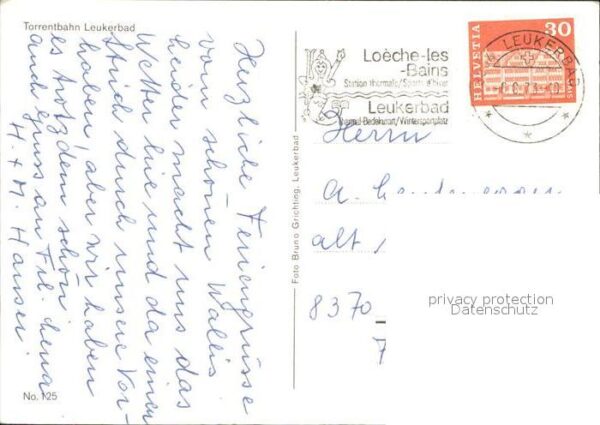 Torrentbahn Leukerbad
Herzliche Feriengrüsse
vom schönen Wallis
leider macht uns das
Wetter hie und da einen
Strich durch unsere Vor-
haben, aber wir haben
es trotzdem schön
auch Gruss an Frl. Lena
H. + M. Hauser.
No. 125
Foto Bruno Grichting, Leukerbad
Loèche-les
-Bains
Station thermale/Sports d'hiver
Leukerbad
Thermal-Badekurort/Wintersportplatz
LEUKERBAD
HELVETIA
30
Herrn
A.
alt
8370
privacy protection
Datenschutz